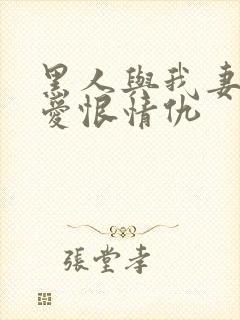 黑人與我妻
愛恨情仇
張堂孝